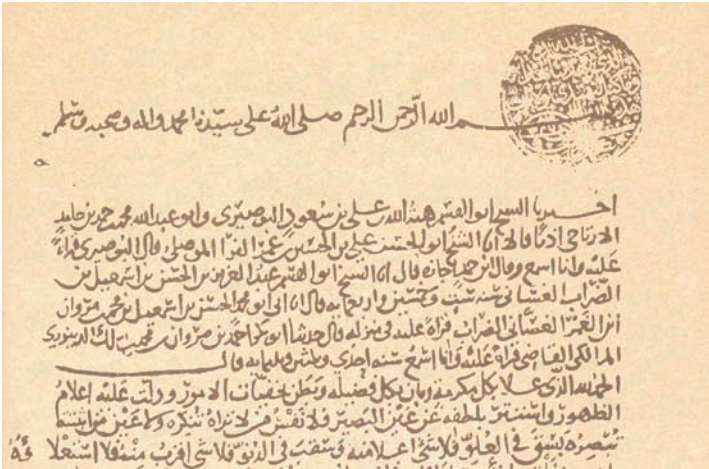 بسم الله الرحمن الرحيم صلى الله على سيدنا محمد واله وصحبه وسلم
اخبرنا الشيخ ابو القسم هبة الله بن علي بن سعود البوصيرى وابو عبد الله محمد بن حمد بن حامد
الارتاحى اذنا قالا انا الشيخ ابو الحسن علي بن الحسين بن عمر الفرا الموصلي قال البوصيرى قراءة
عليه وانا اسمع وقال ابن حمد اجازه قال انا الشيخ ابو القسم عبد العزيز بن الحسن بن اسمعيل بن
الضراب الغسانى سنه ست وخمسين واربعمايه قال انا ابى ابو محمد الحسن بن اسمعيل بن محمد بن مروان
ابن الغمر الغسانى الضراب قراة عليه فى منزله قال حدثنا ابو بكر احمد بن مروان بن مالك الدينورى
المالكى القاضى قراة عليه وانا اسمع سنه احدى وثلثين وثلثمايه قال
الحمد لله الذى علا بكل مكرمة وبان بكل فضيله وبطن بخفيات الامور ودلت عليه اعلام
الظهور واستتر بلطفه عن عين البصير فلا نفس من لا تراه تنكره ولا عين من اثبته
تبصره سبق فى العلو فلا شى اعلا منه وسبقت فى الدنو فلا شى اقرب منه فلا استعلاؤه